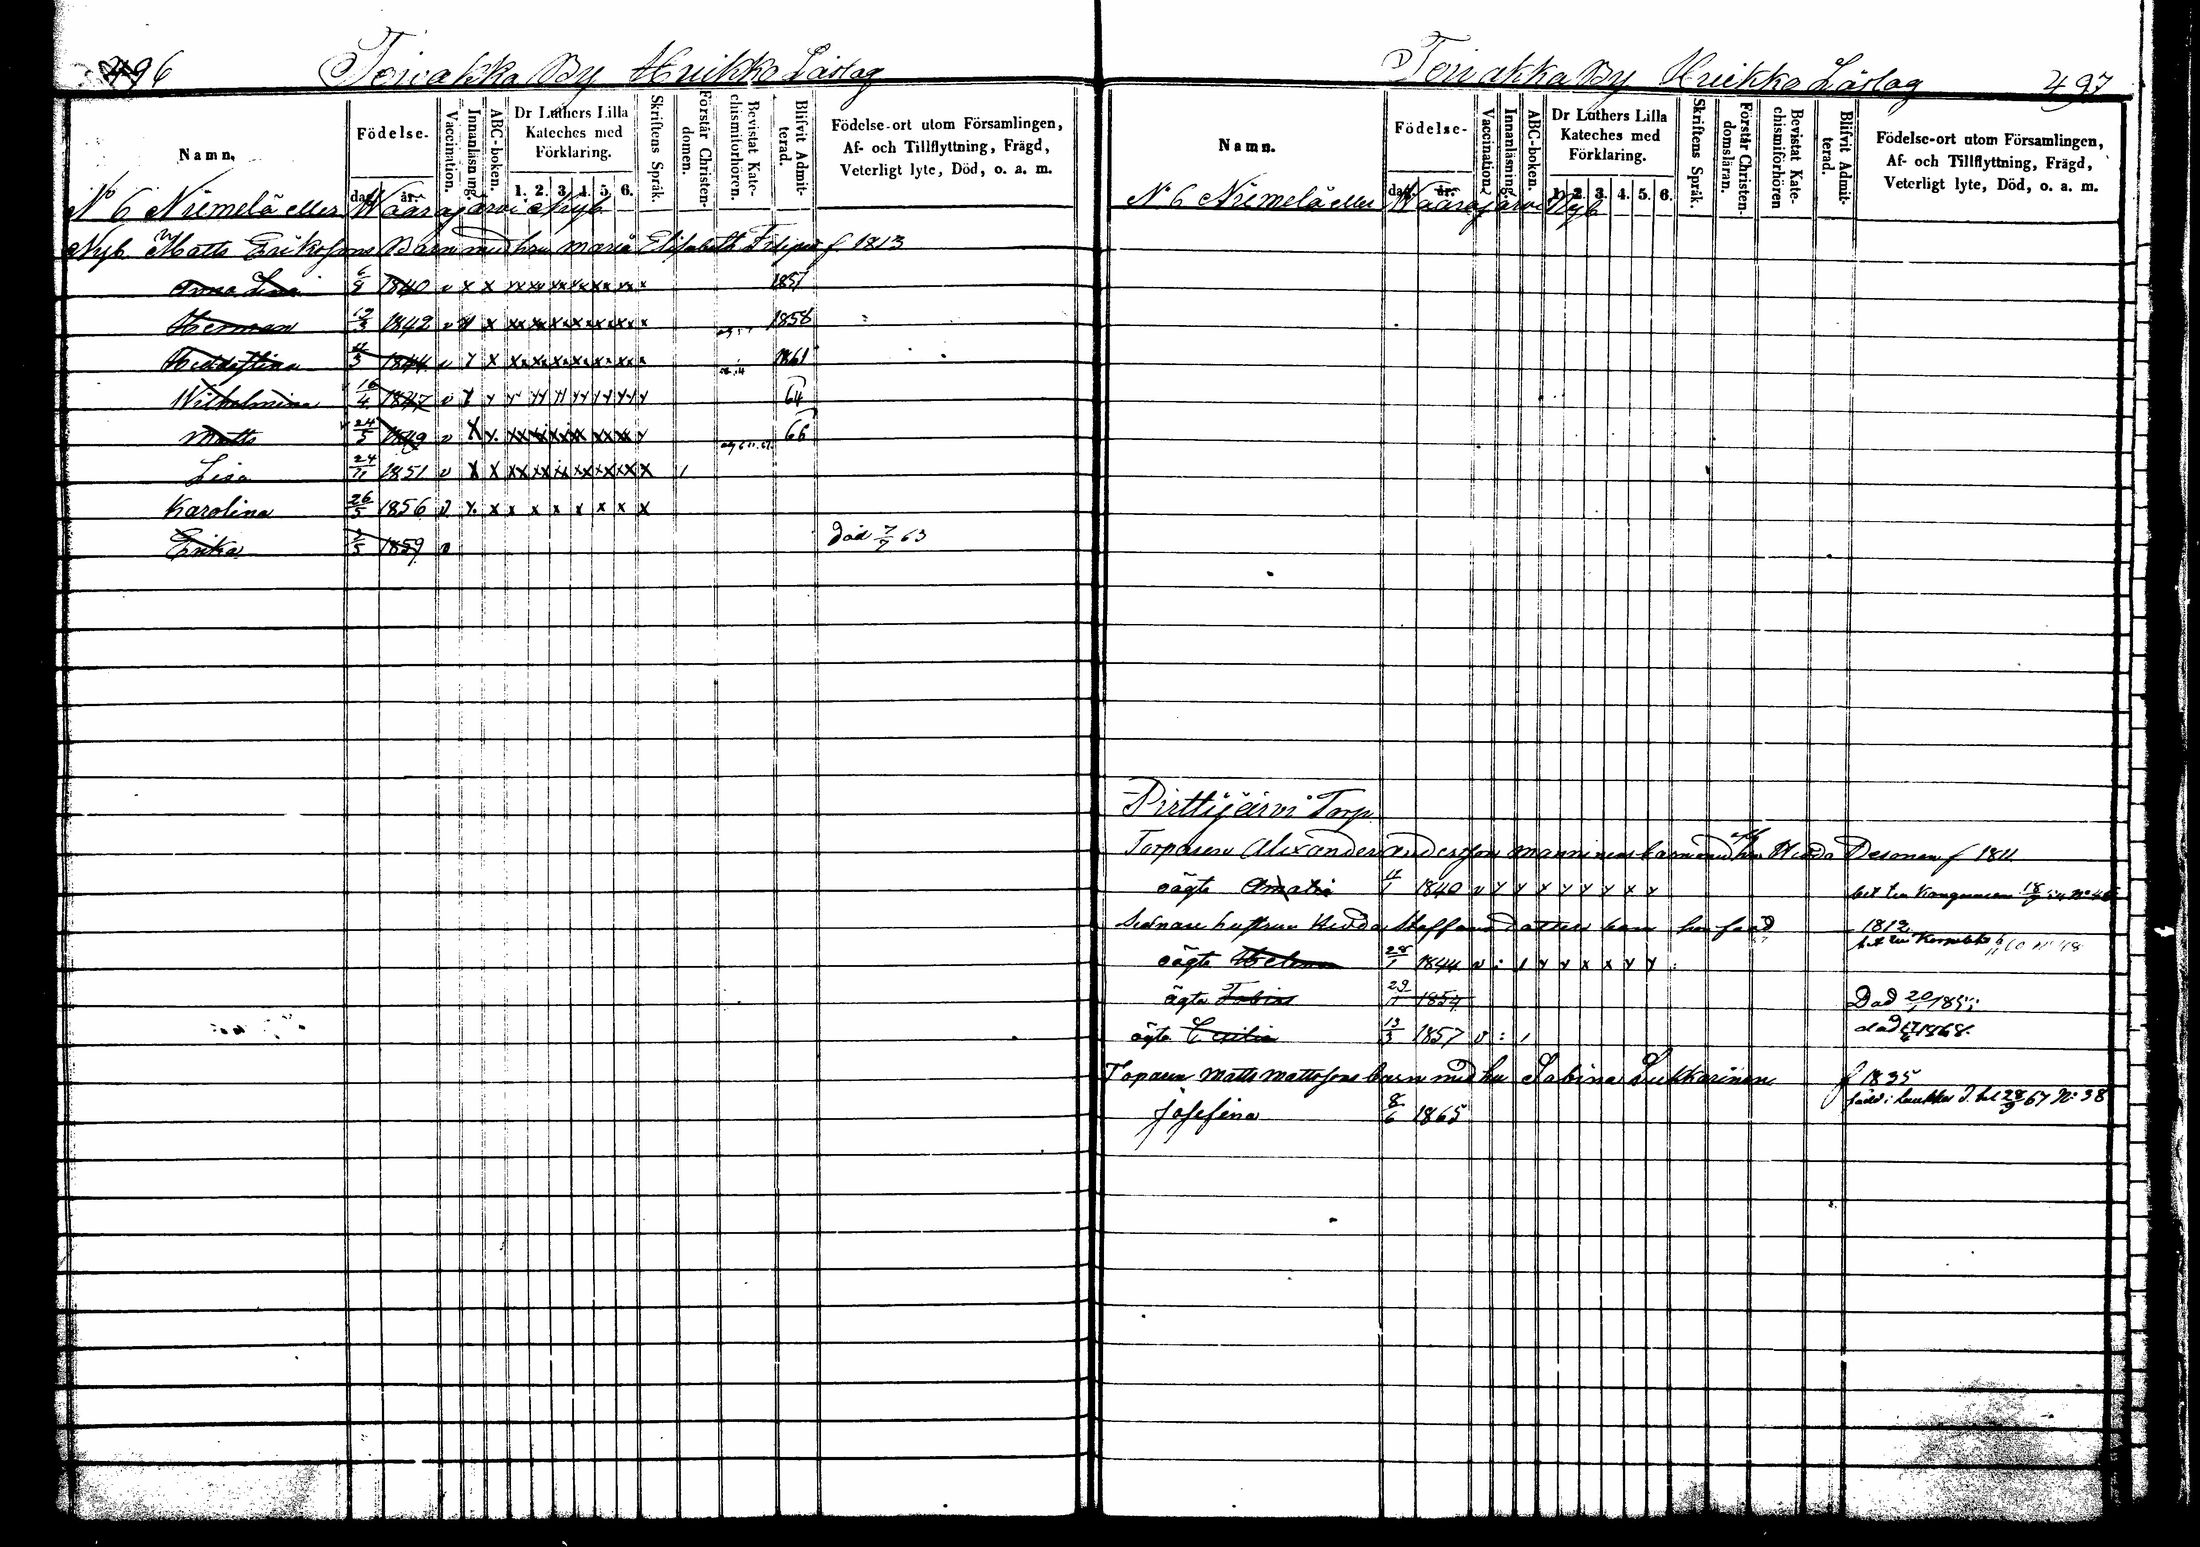 496 Toivakka By Huikko Läslag
Namn.
Födelse-
dat. år.
Vaccination.
Innanläsning.
ABC-boken.
Dr Luthers Lilla Kateches med Förklaring.
1. 2. 3. 4. 5. 6.
Skriftens Språk.
Förstår Christendomen.
Bevistat Katechismiförhören.
Blifvit Admitterad.
Födelse-ort utom Församlingen,
Af- och Tillflyttning, Frägd,
Veterligt lyte, Död, o. a. m.
No 6 Niemelä eller Waarajärvi Nyb
Nyb. Matts Eriksons Barn med hru Maria Elisabeth f 1813
Anna Lisa 6/8 1840 v x x 1857
Herman 12/3 1842 v x x 1858
Hedda Stina 11/3 1844 v x x 1861
Wilhelmina 16/4 1847 v x x 64
Matts 24/5 1849 v x x 66
Lisa 24/11 1851 v x x
Karolina 26/5 1856 v x x x x x x x x x
Erika 3/5 1859 v Död 7/7 63
Toivakka By Huikko Läslag 497
Namn.
Födelse-
dat. år.
Vaccination.
Innanläsning.
ABC-boken.
Dr Luthers Lilla Kateches med Förklaring.
1. 2. 3. 4. 5. 6.
Skriftens Språk.
Förstår Christendomsläran.
Bevistat Katechismiförhören
Blifvit Admitterad.
Födelse-ort utom Församlingen,
Af- och Tillflyttning, Frägd,
Veterligt lyte, Död, o. a. m.
No 6 Niemelä eller Waarajärvi Nyb
Pirttijärvi Torp
Torparen Alexander Andersson Manninens barn med hru Hedda Desonen f 1811
oägta Amalia 11/1 1840 v
Sednare hustrun Hedda Staffansdotters barn 1812
oägta Helena 28/1 1844 v
ägta Tobias 29/11 1854 Död 20/1 1855
ägta Cecilia 13/3 1857 v död 1868.
Toparen Matts Mattssons barn med hu Sabina Liukkarinen f 1835
Josefina 8/6 1865 född i Laukka bet 28/9 67 No 38